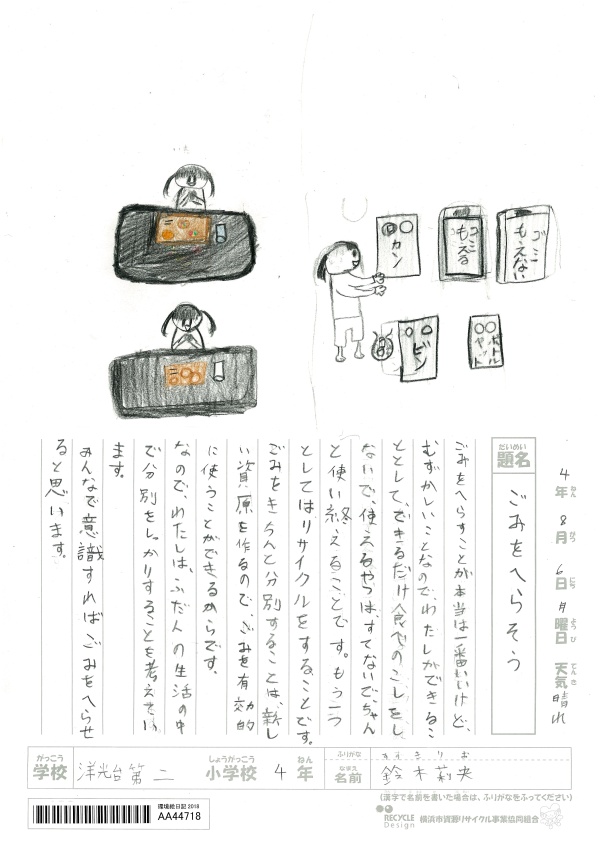 カン
もえる
ゴミ
もえない
ゴミ
ビン
ペット
ボトル
4年8月6日月曜日 天気晴れ
ねん
がつ
にち
ようび
てんき
だいめい
題名
ごみをへらそう
ごみをへらすことが本当は一番いいけど、
むずかしいことなので、わたしができるこ
ととして、できるだけ食べのこしをし
ないで、使えるやつは、すてないで、ちゃん
と使い終えることです。もう一つ
としてはリサイクルをすることです。
ごみをきちんと分別することは、新し
い資原を作るので、ごみを有効的
に使うことができるからです。
なので、わたしは、ふだ人の生活の中
で分別をしっかりすることを考えてい
ます。
みんなで意識すればごみをへらせ
ると思います。
がっこう
学校
洋光台第二
しょうがっこう
小学校
4
ねん
年
ふりがな
すずきりお
なまえ
名前
鈴木莉央
(漢字で名前を書いた場合は、ふりがなをふってください)
環境絵日記 2018
AA44718
RECYCLE
Design
横浜市資源リサイクル事業協同組合